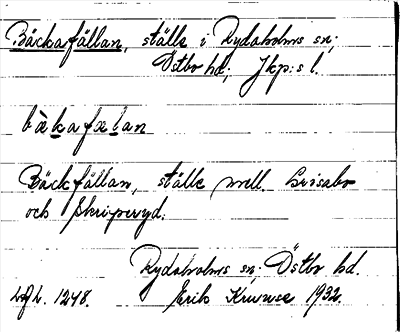 Bäckafällan, ställe i Rydaholms sn;
Östbo hd; Jkp:s l.
bäkafælan
Bäckfällan, ställe mell. Grisabo
och Skriperyd.
Rydaholms sn; Östbo hd.
1248. Erik Kruuse 1932.